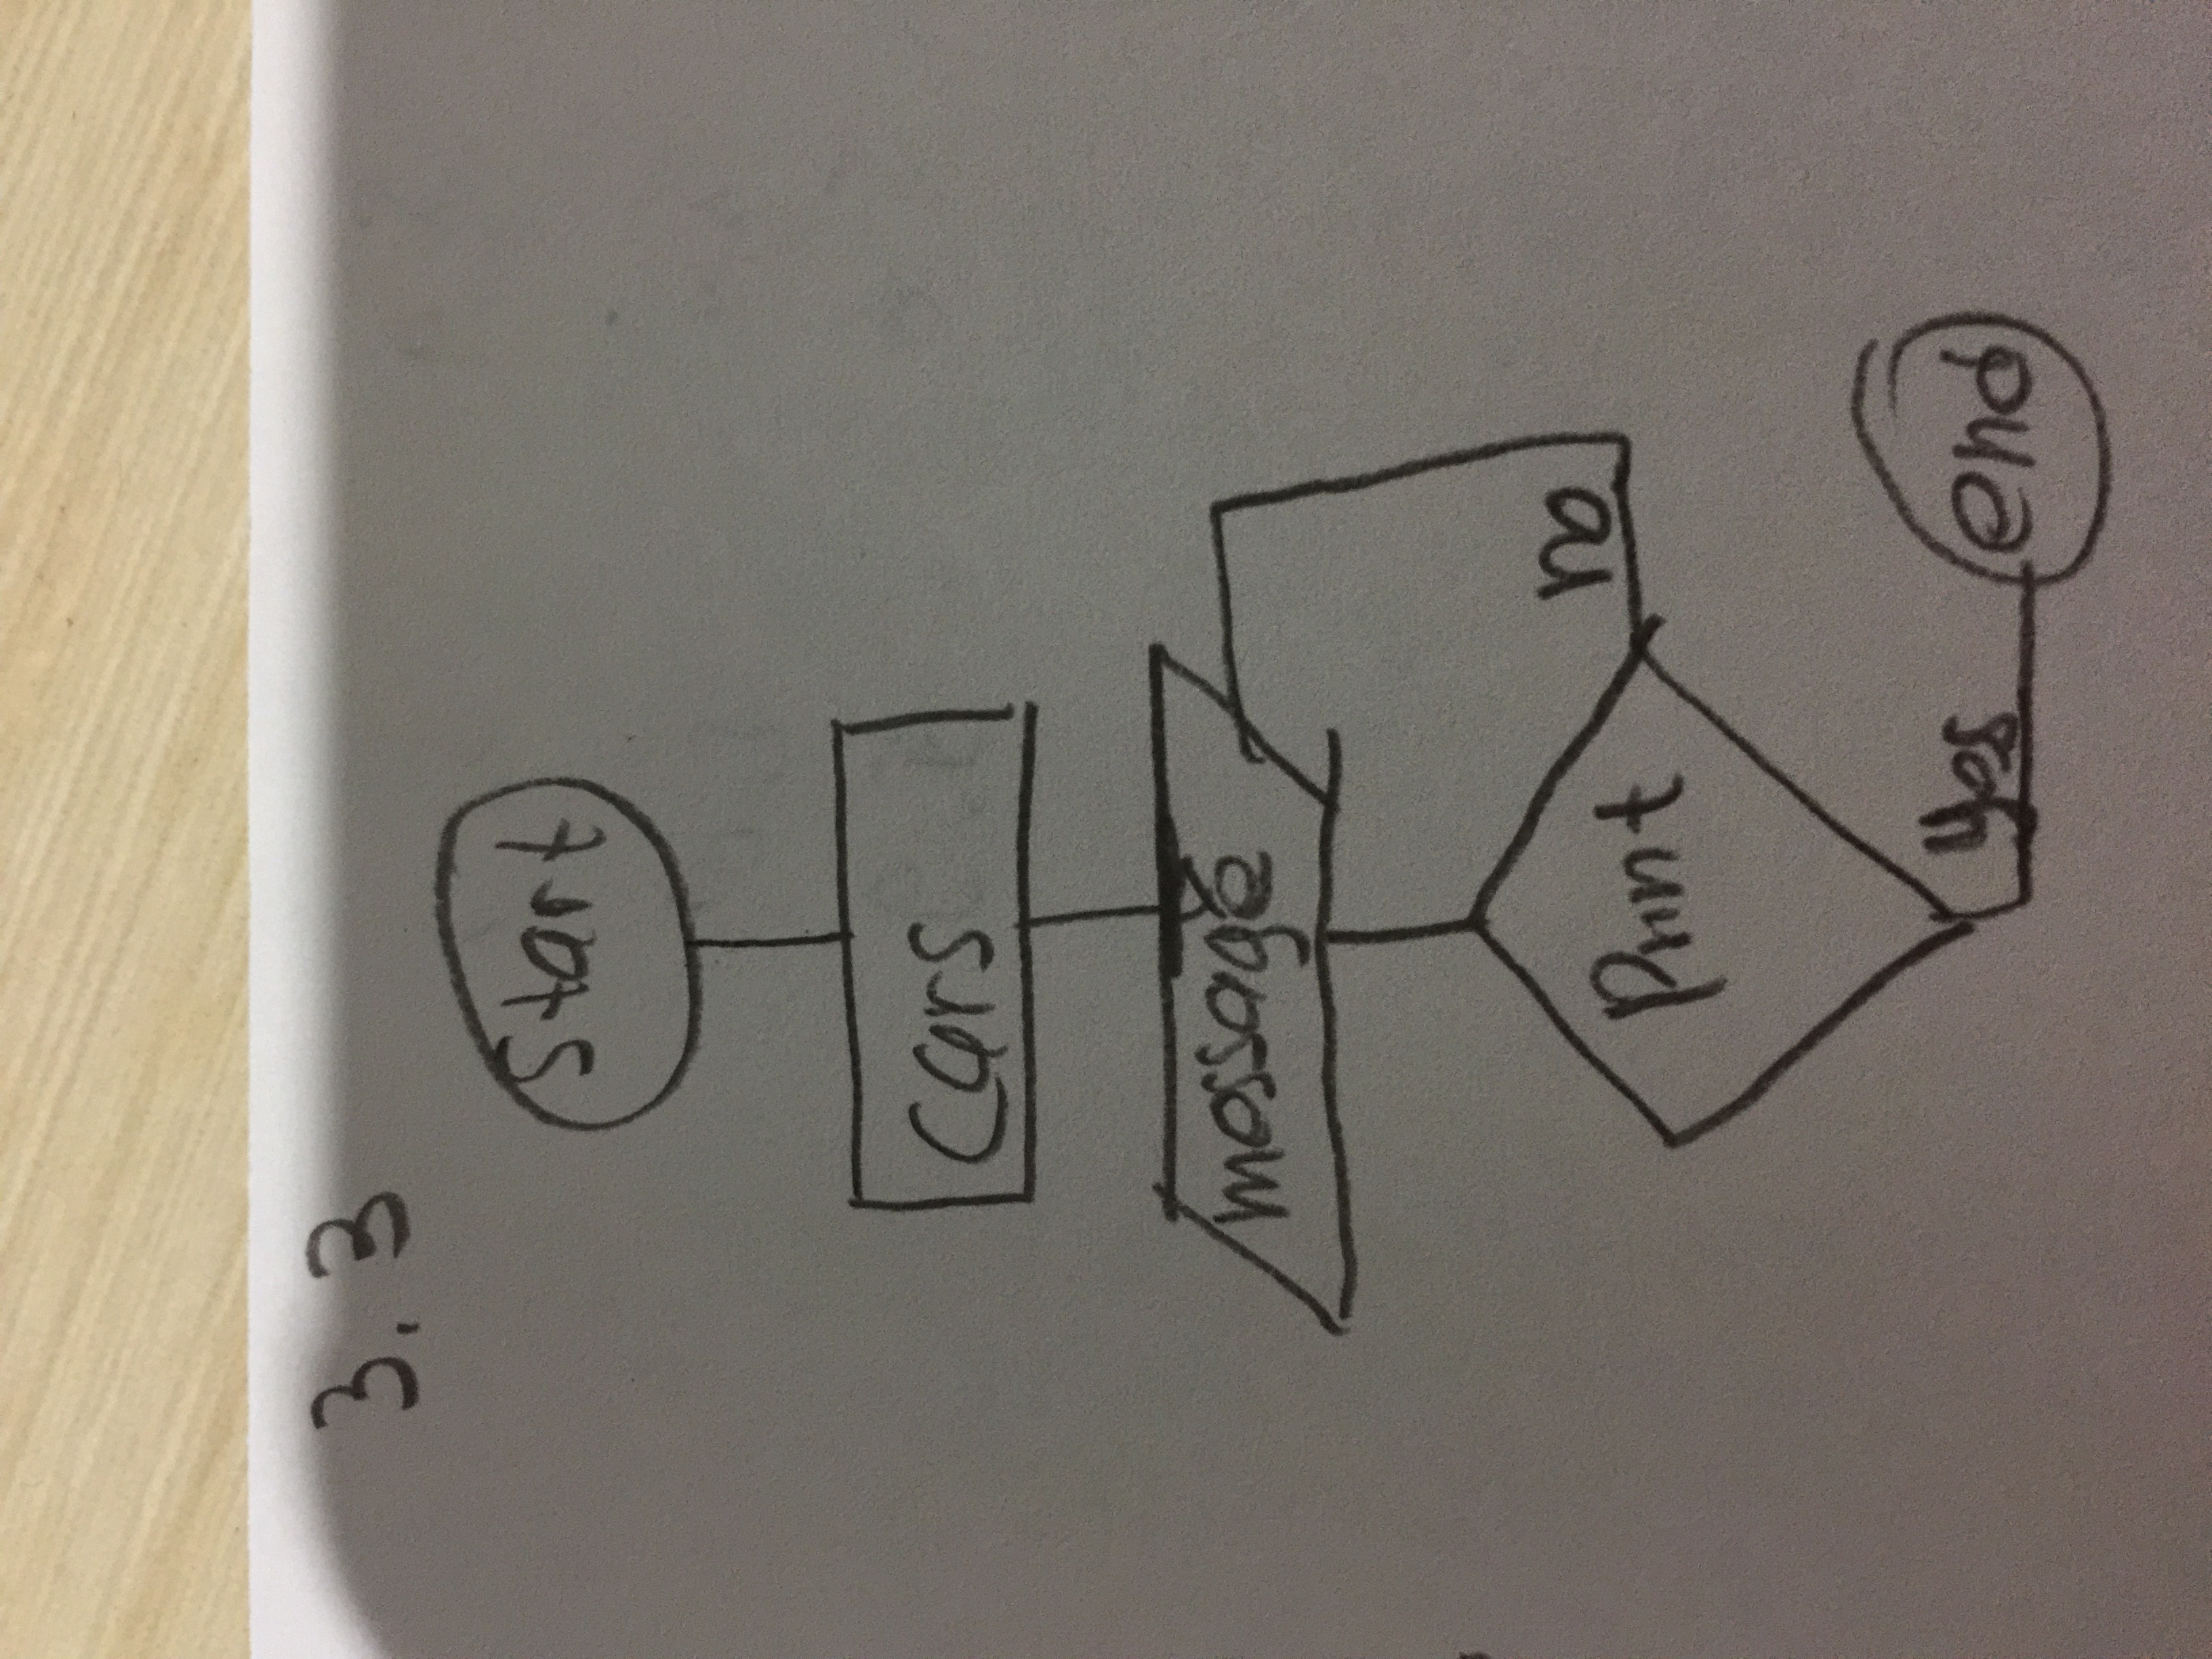 3.3
Start
Cars
message
no
Print
yes
end